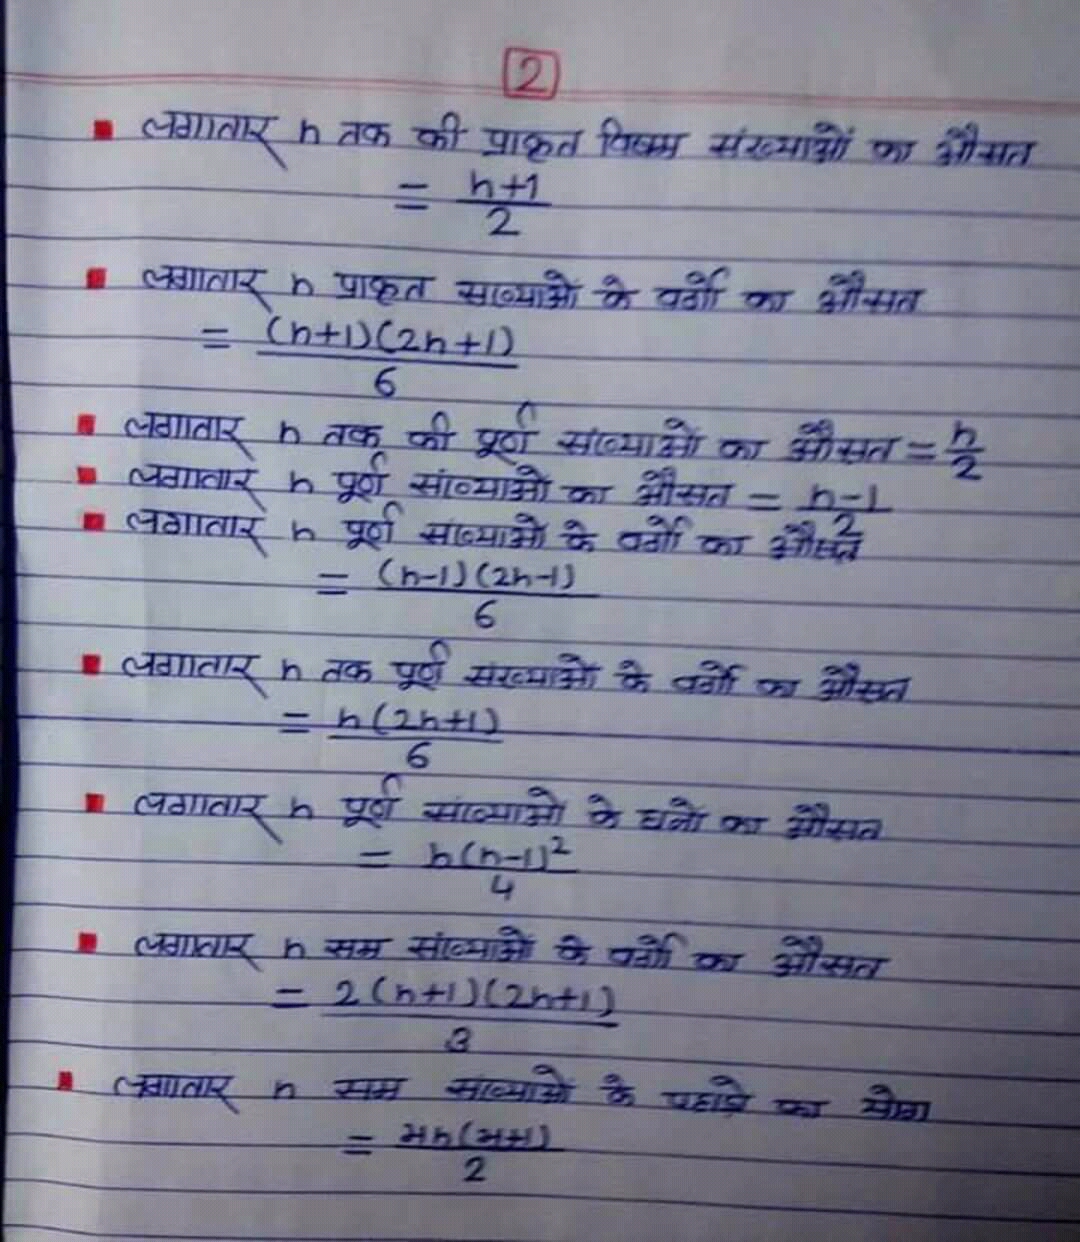 2
लगातार n तक की प्राकृत विषम संख्याओं का औसत
= n+1/2
लगातार n प्राकृत संख्याओं के वर्गों का औसत
= (n+1)(2n+1)/6
लगातार n तक की पूर्ण संख्याओं का औसत = n/2
लगातार n पूर्ण संख्याओं का औसत = n-1/2
लगातार n पूर्ण संख्याओ के वर्गों का औसत
= (n-1)(2n-1)/6
लगातार n तक पूर्ण संख्याओं के वर्गों का औसत
= n(2n+1)/6
लगातार n पूर्ण संख्याओ के घनों का औसत
= n(n-1)²/4
लगातार n सम संख्याओं के वर्गों का औसत
= 2(n+1)(2n+1)/3
लगातार n सम संख्याओं के का योग
= n( +1)/2